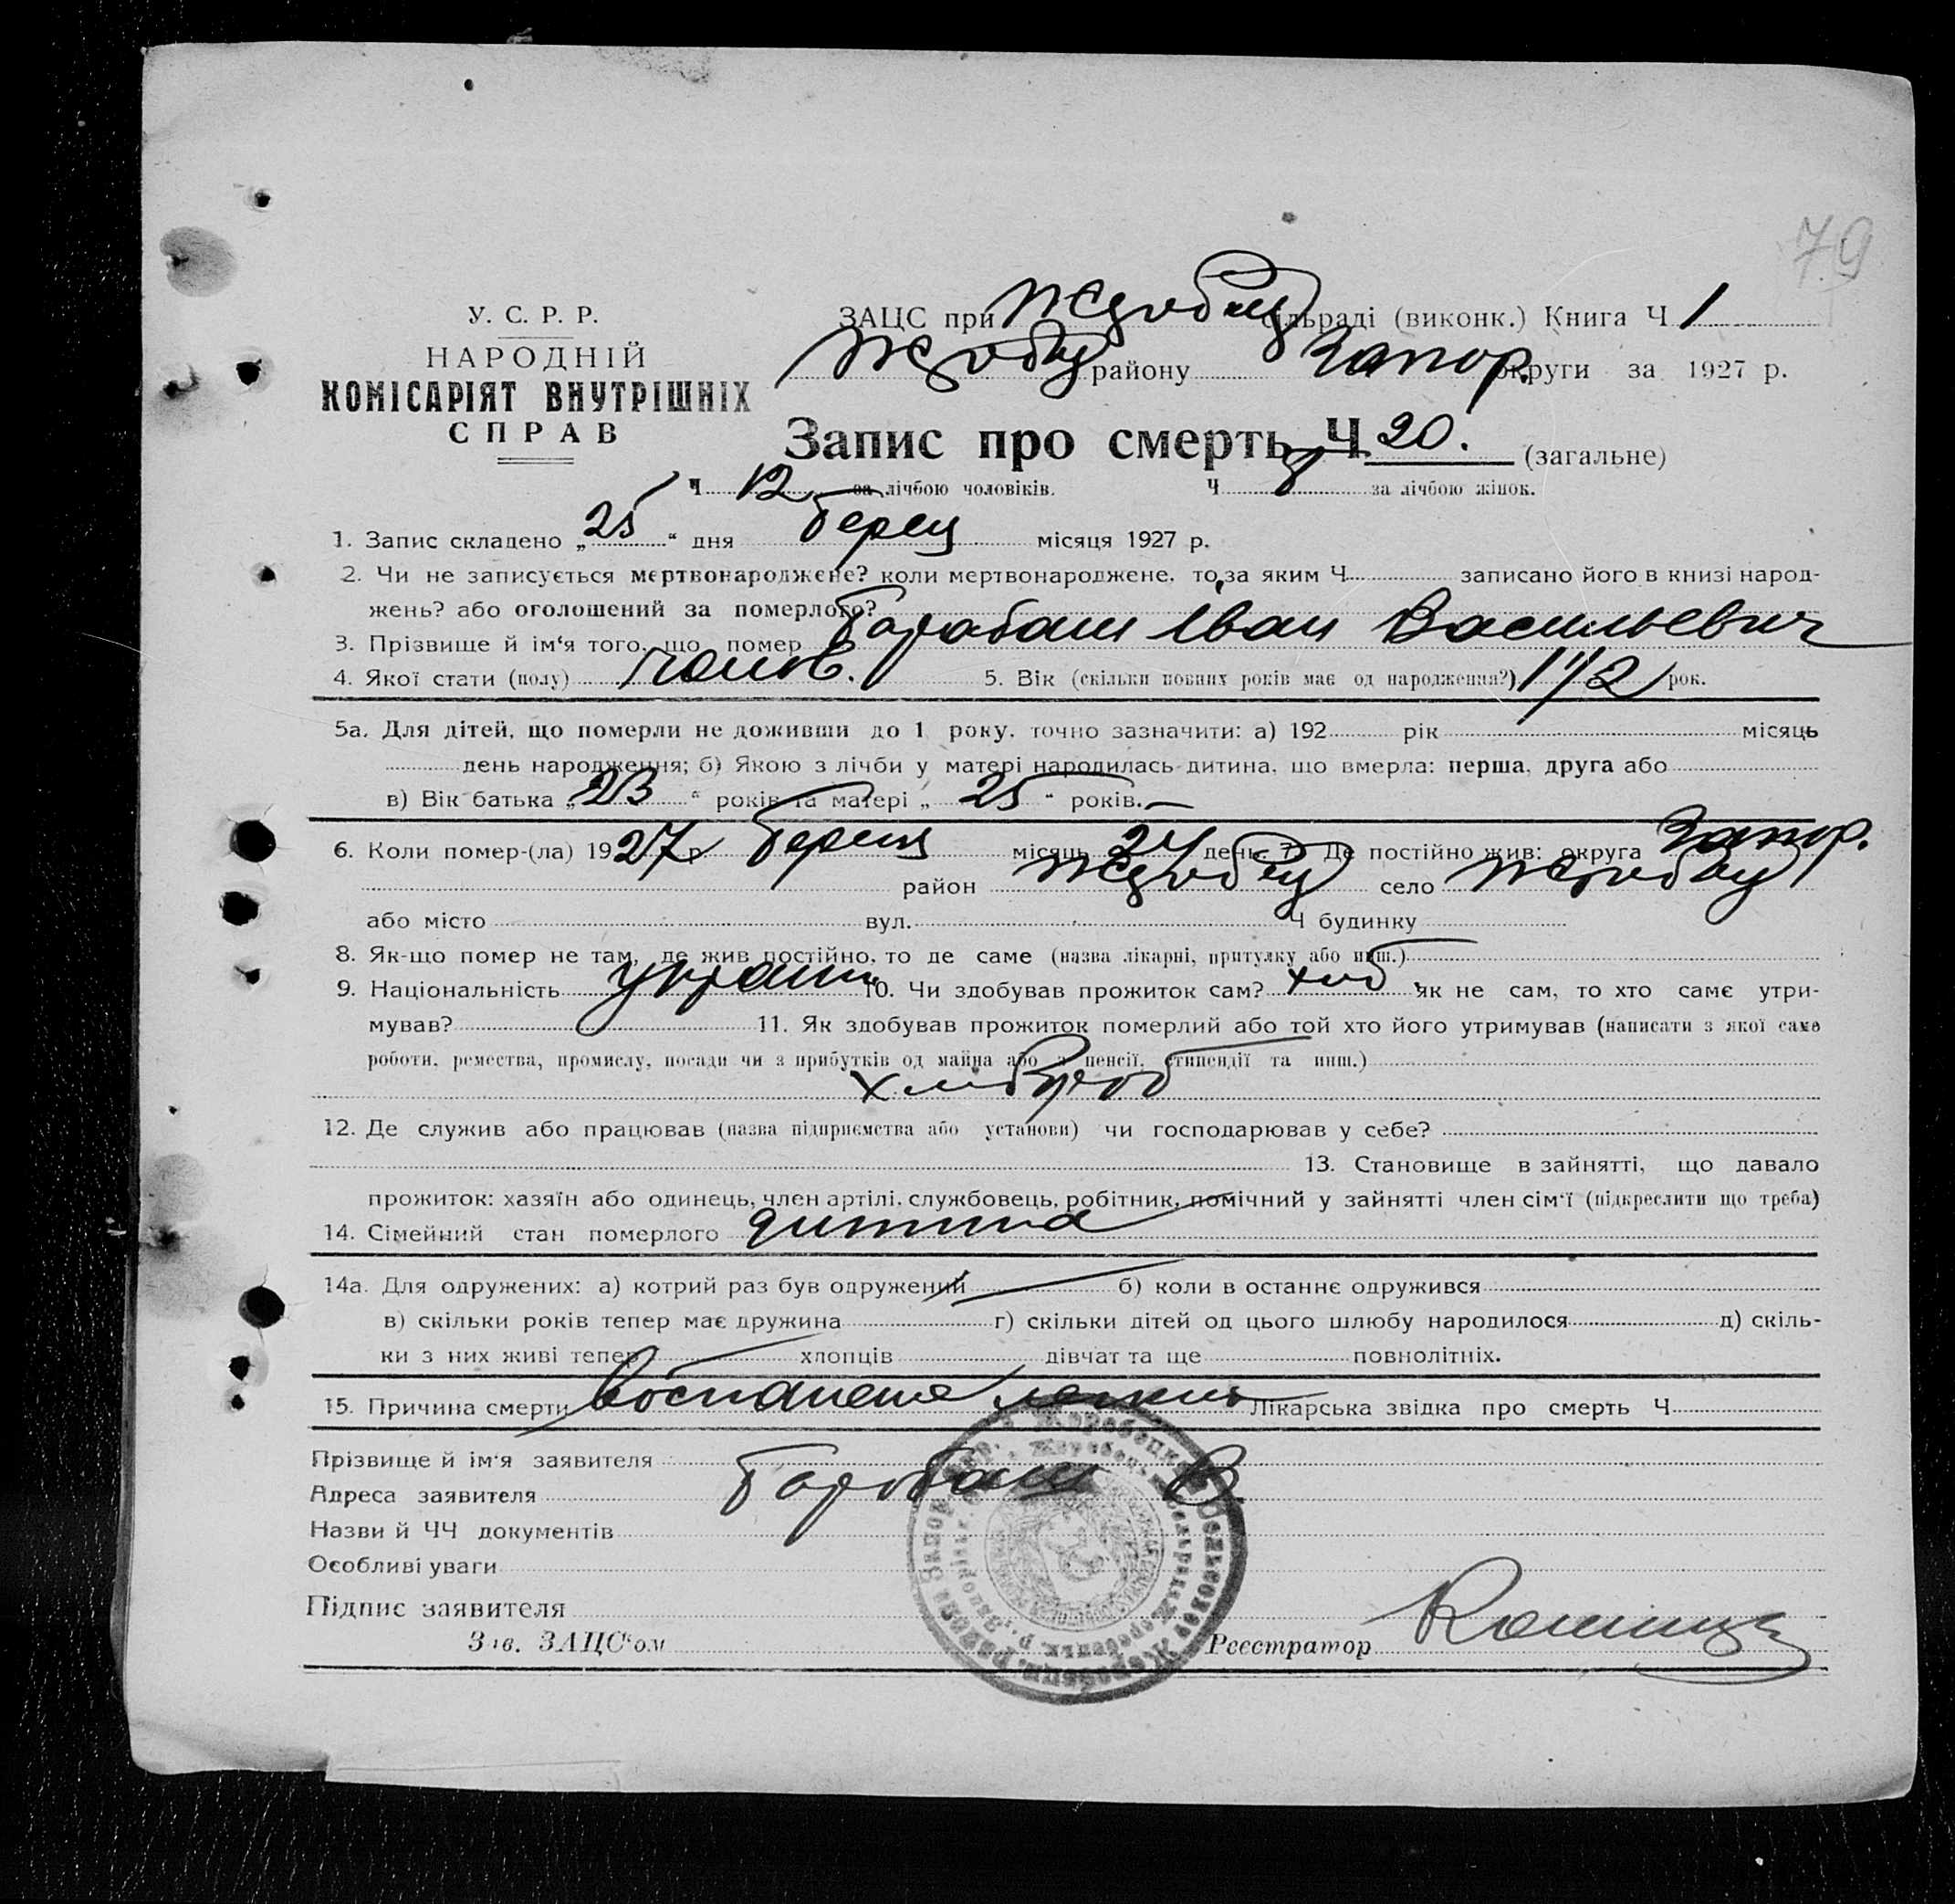 79
У. С. Р. Р.
НАРОДНІЙ
КОМІСАРІЯТ ВНУТРІШНІХ
СПРАВ
ЗАЦС при Жеребец сільраді (виконк.) Книга Ч 1
Жеребец району Запор. округи за 1927 р.
Запис про смерть Ч. 20. (загальне)
Ч 12 за лічбою чоловіків. Ч 8 за лічбою жінок.
1. Запис складено „25“ дня берец місяця 1927 р.
2. Чи не записується мертвонароджене? коли мертвонароджене, то за яким Ч. записано його в книзі народ-
жень? або оголошений за померлого?
3. Прізвище й ім‘я того, що помер Барабаш Іван Васильевич
4. Якої стати (полу) чолов. 5. Вік (скільки повних років має од народження?) 1 1/2 рок.
5а. Для дітей, що померли не доживши до 1 року, точно зазначити: а) 192 рік місяць
день народження; б) Якою з лічби у матері народилась дитина, що вмерла: перша, друга або
в) Вік батька „23“ років та матері „25“ років.
6. Коли помер-(ла) 1927 р. берец місяць 24 день 7. Де постійно жив: округа Запор.
район Жеребец село Жеребец
або місто вул. Ч будинку
8. Як-що помер не там, де жив постійно, то де саме (назва лікарні, притулку або инш.)
9. Національність україн. 10. Чи здобував прожиток сам? як не сам, то хто саме утри-
мував? 11. Як здобував прожиток померлий або той хто його утримував (написати з якої саме
роботи, ремества, промислу, посади чи з прибутків од майна або з пенсії, стипендії та инш.)
хлібороб
12. Де служив або працював (назва підприємства або установи) чи господарював у себе?
13. Становище в зайнятті, що давало
прожиток: хазяїн або одинець, член артілі, службовець, робітник, помічний у зайнятті член сім‘ї (підкреслити що треба)
14. Сімейний стан померлого дитина
14а. Для одружених: а) котрий раз був одружений б) коли в останнє одружився
в) скільки років тепер має дружина г) скільки дітей од цього шлюбу народилося д) скіль-
ки з них живі тепер хлопців дівчат та ще повнолітніх.
15. Причина смерти воспаление легких Лікарська звідка про смерть Ч
Прізвище й ім‘я заявителя Барабаш В.
Адреса заявителя
Назви й ЧЧ документів
Особливі уваги
Підпис заявителя
Зав. ЗАЦС‘ом Реєстратор